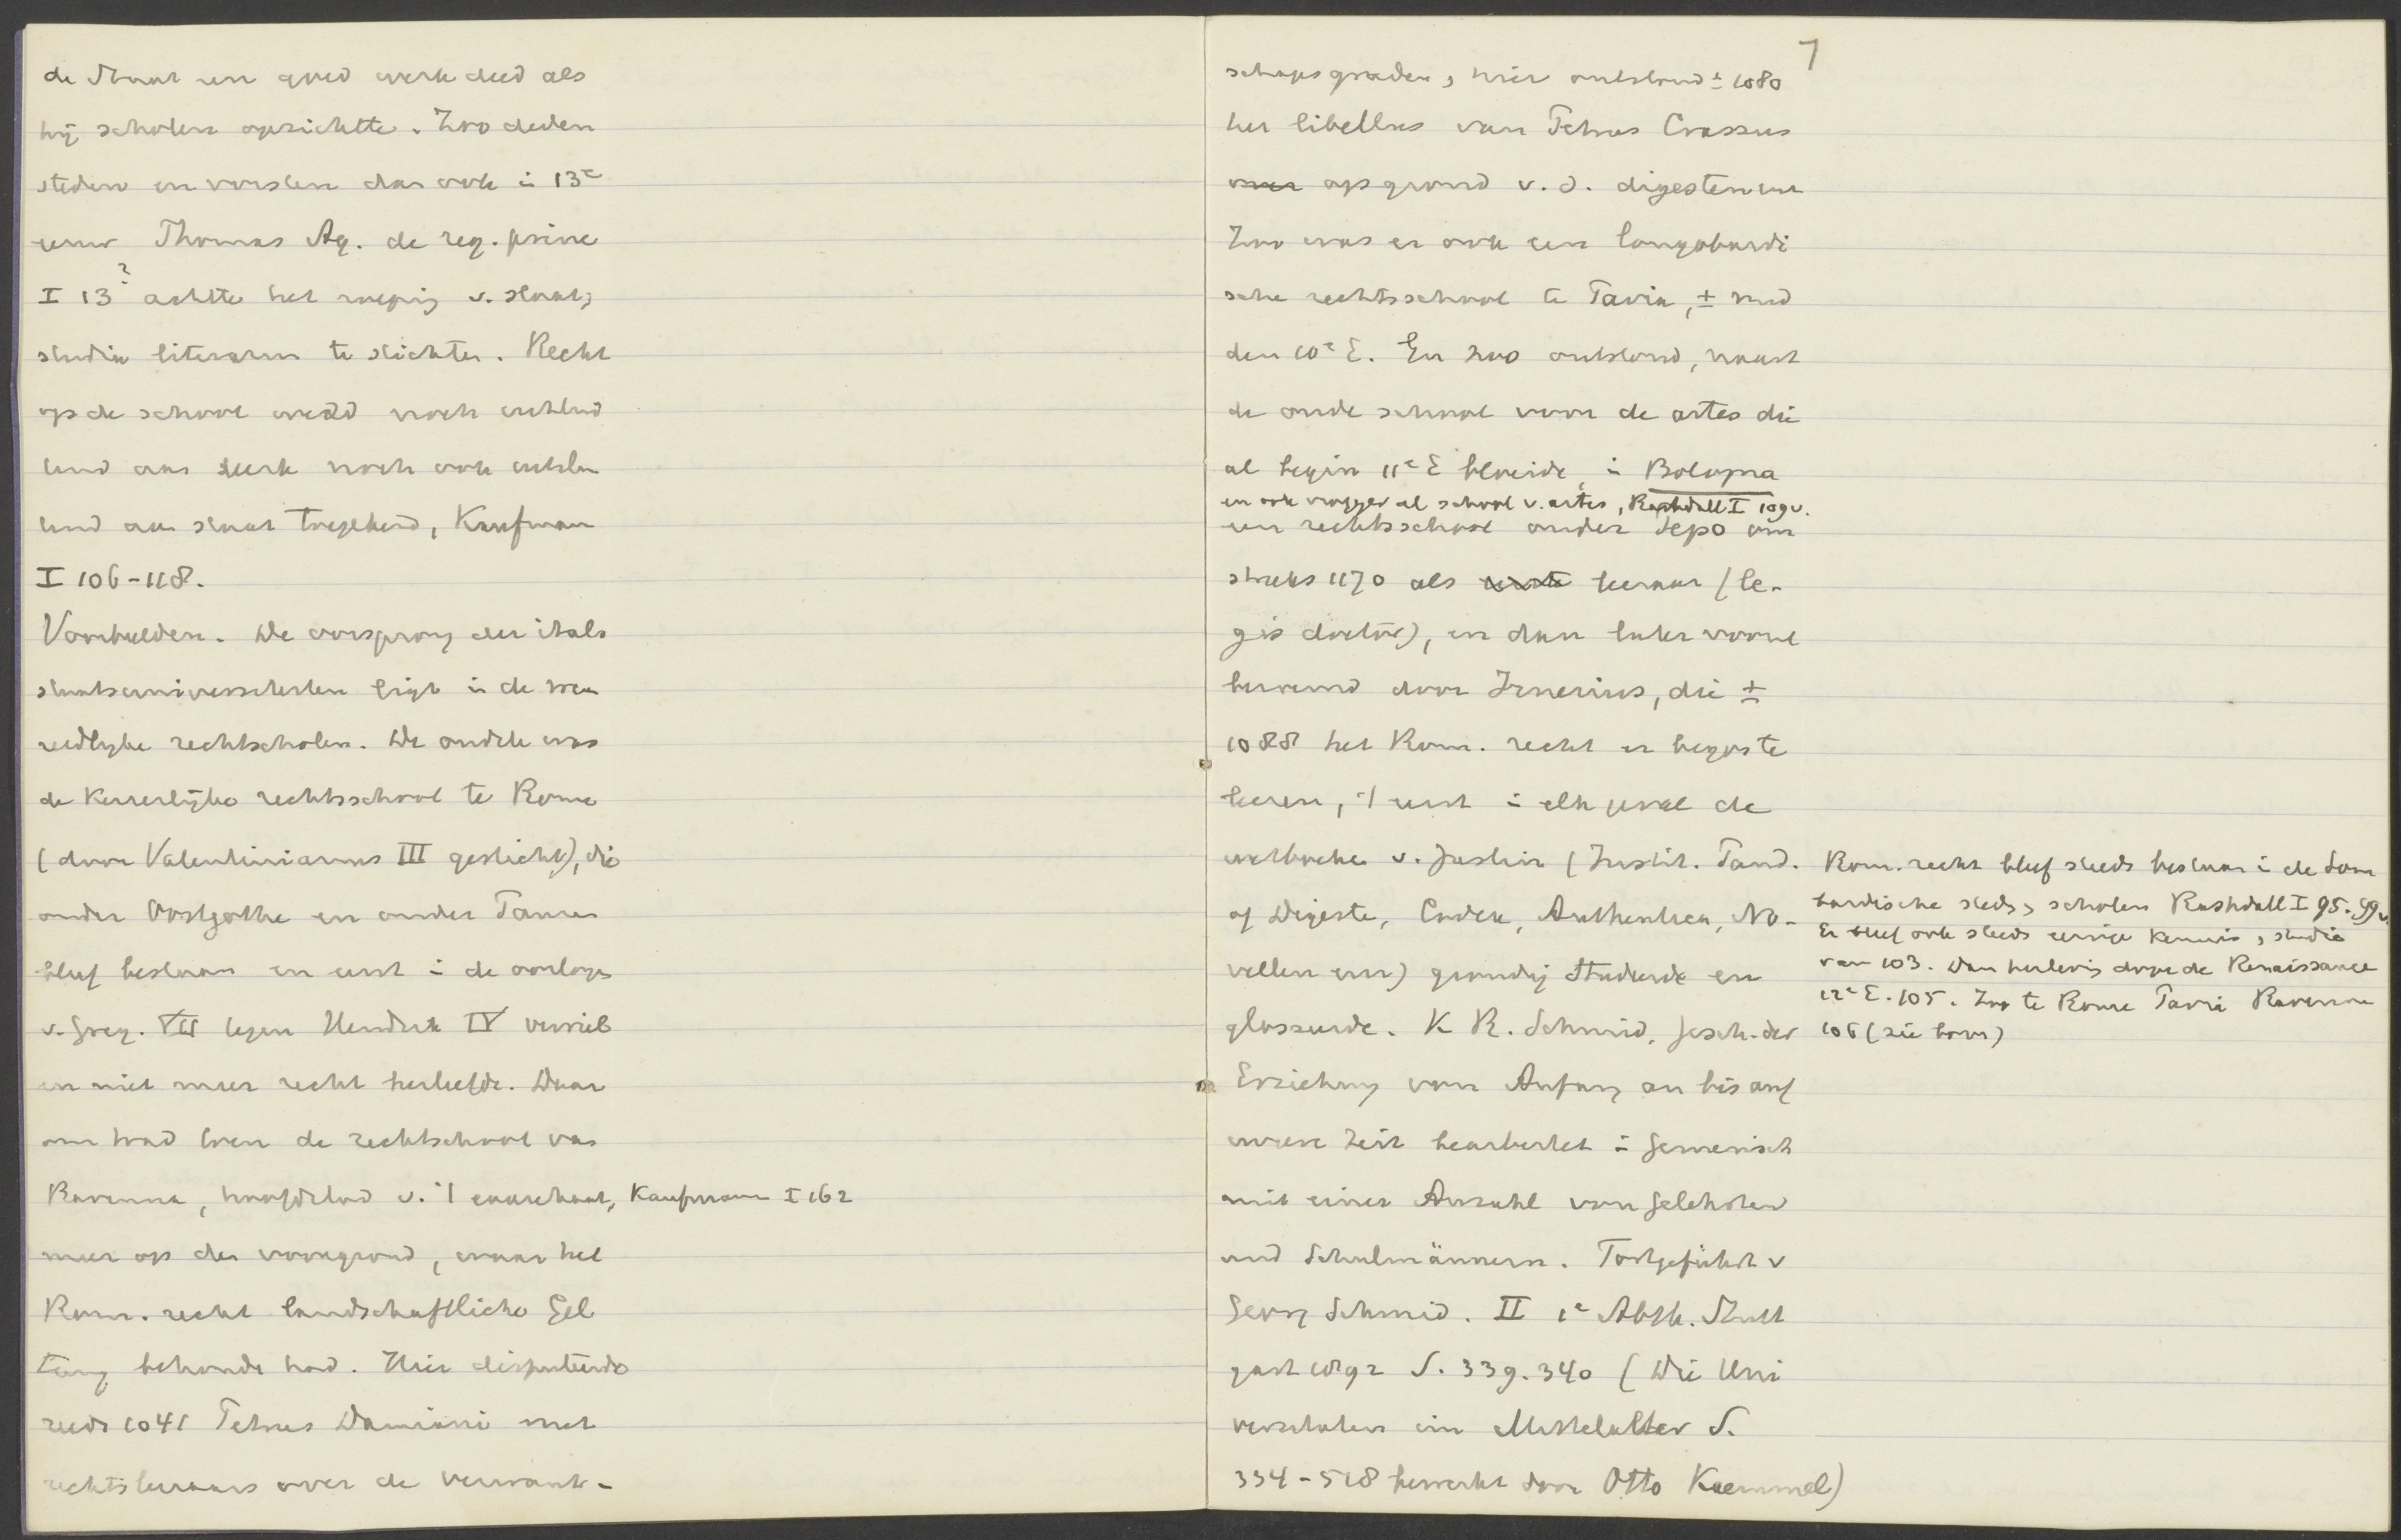 de Staat een goed werk deed als
hij scholen oprichtte. Zoo deden
steden en vorsten dan ook in 13e
eeuw Thomas Aq. de reg. princ
I 13? achtte het roeping v. staat,
studia literarum te stichten. Recht
op de school werd noch uitslui
tend aan kerk noch ook uitslui
tend aan staat toegekend, Kaufman
I 106-118.
Voorbeelden. De oorsprong der itals
staatsuniversiteiten ligt in de we
reldlijke rechtscholen. De oudste was
de Keizerlijke rechtsschool te Rome
(door Valentinianus III gesticht), die
onder Oostgothe en onder Pausen
bleef bestaan en eerst in de oorlogen
v. Greg. VII tegen Hendrik IV verviel
en niet meer recht herleefde. Daar
om trad toen de rechtschool van
Ravenna, hoofdstad v. 't exarchaat, Kaufmann I 162
meer op den voorgrond, waar het
Rom. recht landschaftliche Gel
tung behoude had. Hier disputeerde
reeds 1041 Petrus Damiani met
rechtsleeraars over de verwant-
7
schapsgraden, hier ontstond ± 1080
het libellus van Petrus Crassus
op grond v. d. digesten enz
Zoo was er ook een longobardi
sche rechtsschool te Pavia, ± mid
den 10e E. En zoo ontstond, naast
de oude school voor de artes die
al begin 11e E bloeide, in Bologna
en ook vroeger al school v. artes, Rashdall I 109v.
een rechtsschool onder Pepo om
streks 1170 als eerste leeraar (le-
gis doctor), en dan later vooral
beroemd door Irnerius, die ±
1088 het Rom. recht er begon te
leeren, 't eerst in elk geval de
wetboeken v. Justin (Instit. Pand.
of Digeste, Codex, Authentica, No-
vellen enz) grondig studeerde en
glosseerde. K R. Schmid, Gesch. der
Erziehung vom Anfang an bis auf
unsere Zeit bearbeitet in Gemeinsch
mit einer Anzahl von Gelehrten
und Schulmännern. Fortgeführt v
Georg Schmid. II 1e Abth. Stutt
gart 1892 S. 339. 340 (Die Uni
versitaten im Mittelalter S.
334-518 bewerkt door Otto Kaemmel)
Rom. recht bleef steeds bestaan in de Lom
bardische steds, scholen Rashdall I 95. 99v.
Er bleef ook steeds eenige kennis, studie
van 103. Dan herlevig door de Renaissance
12e E. 105. Zoo te Rome Pavia Ravenna
106 (zie boven)